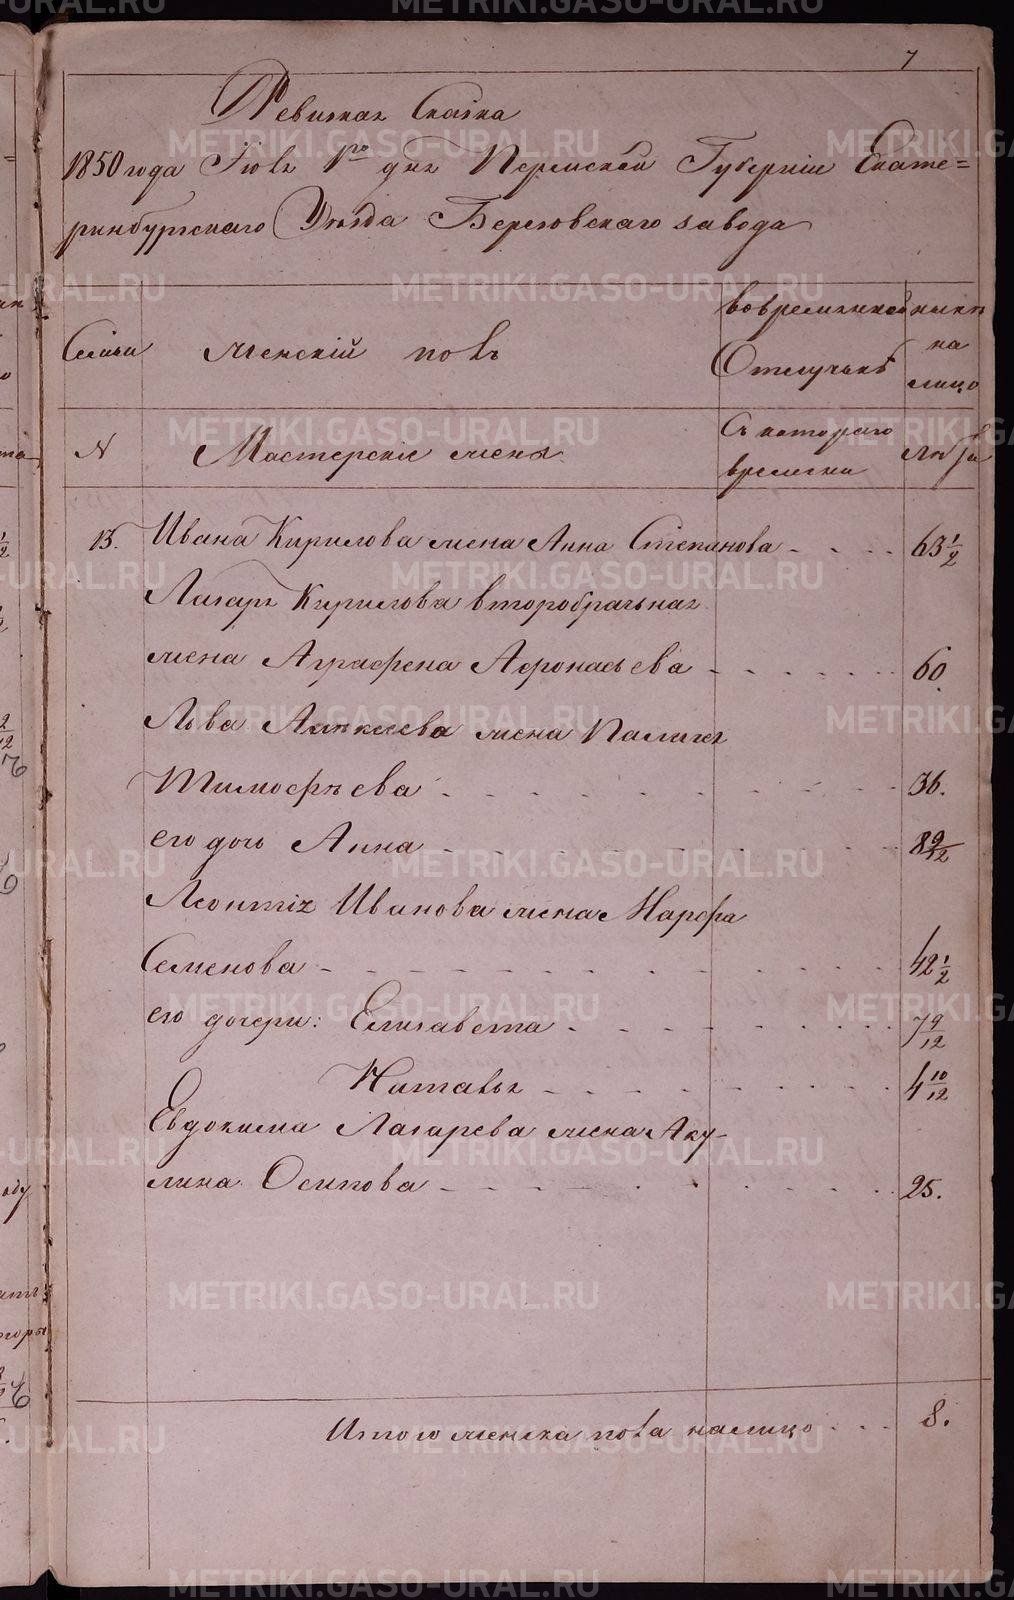 7
Ревизкая Сказка
1850 года Іюля 1го дня Пермской Губерніи Екате=
ринбургскаго Уѣзда Березовскаго завода
Семьи
женскій полъ
во временной
Отлучкѣ
нынѣ
на
лицо
N
Мастерскіе жены
Съ котораго
времени
Лѣта
13. Ивана Кирилова жена Анна Степанова - - - - 63 1/2
Лазаря Кирилова второбрачьная
жена Аграфена Афонасьева - - - - - - 60.
Льва Алѣксѣева жена Палагея
Тимофѣева - - - - - - - - - 36.
его дочь Анна - - - - - - - - - 8 9/12
Леонтія Иванова жена Марфа
Семенова - - - - - - - - - - - 42 1/2
его дочери: Елизавета - - - - - - - 7 9/12
Наталья - - - - - - - 4 10/12
Евдокима Лазарева жена Аку-
лина Осипова - - - - - - - - 25.
Итого женска пола налицо - - - 8.
METRIKI.GASO-URAL.RU